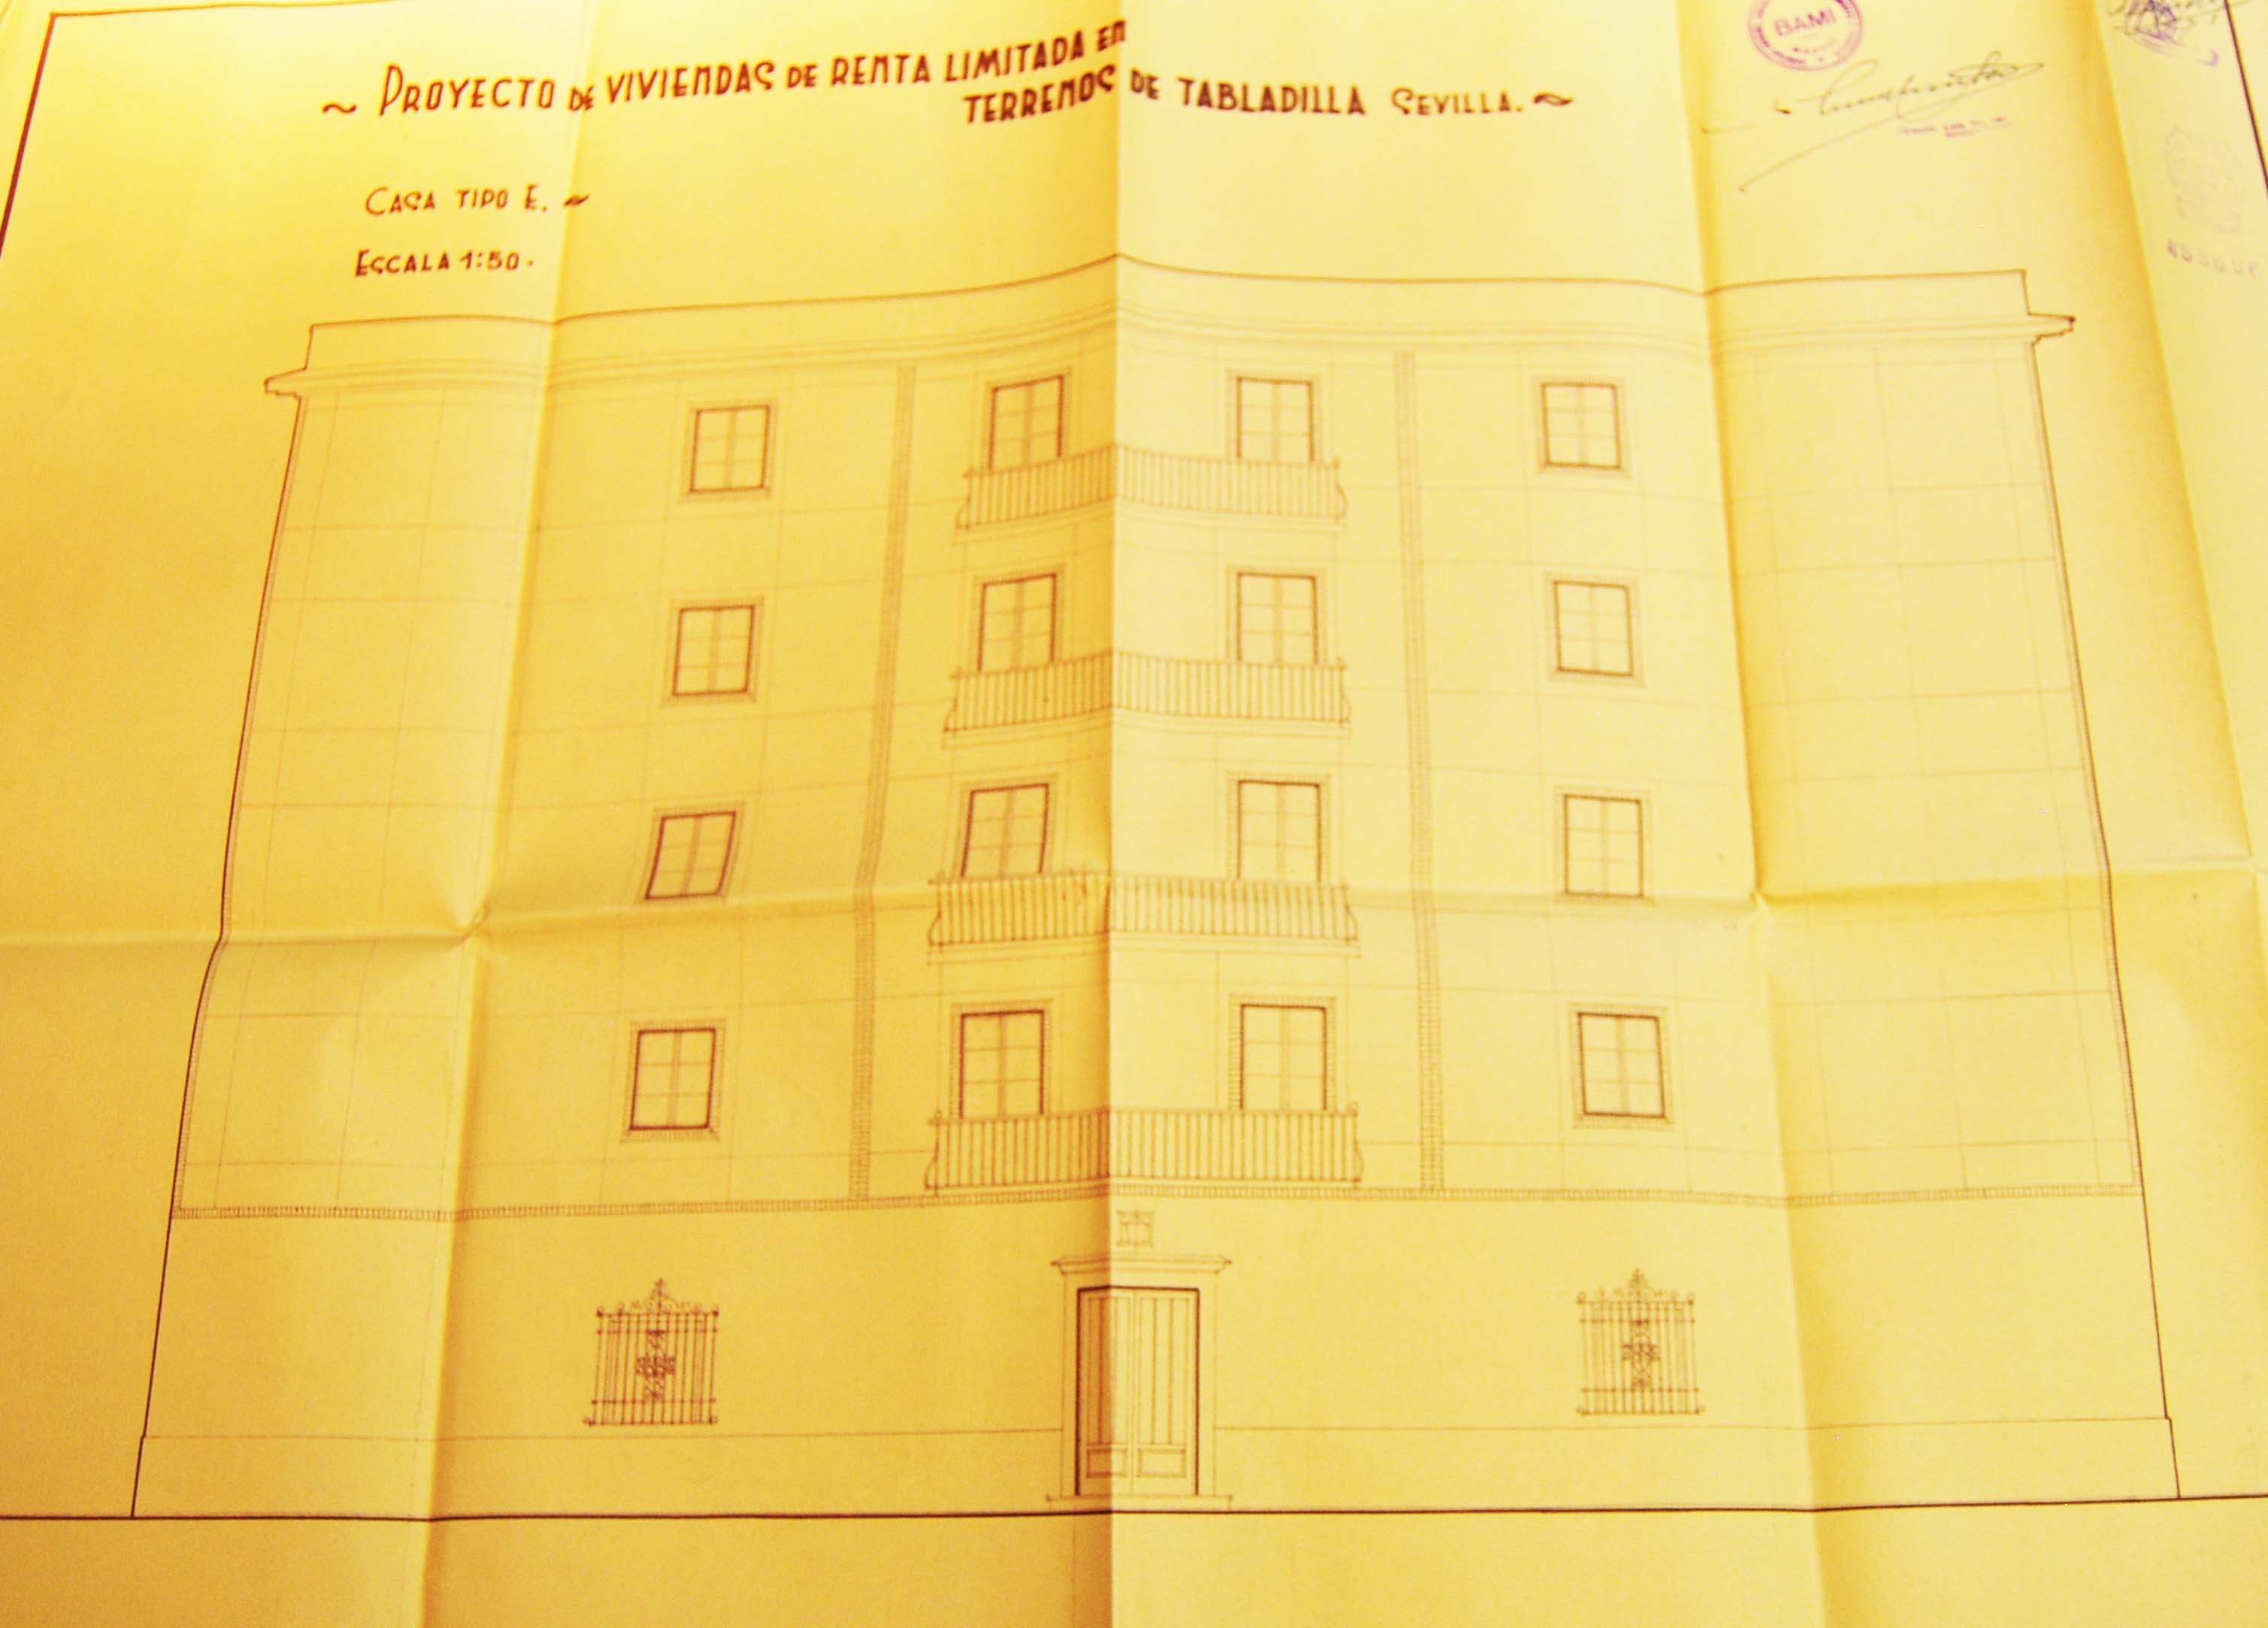 ~ PROYECTO DE VIVIENDAS DE RENTA LIMITADA EN
TERRENOS DE TABLADILLA SEVILLA. ~
CASA TIPO E. ~
ESCALA 1:50.
BAMI